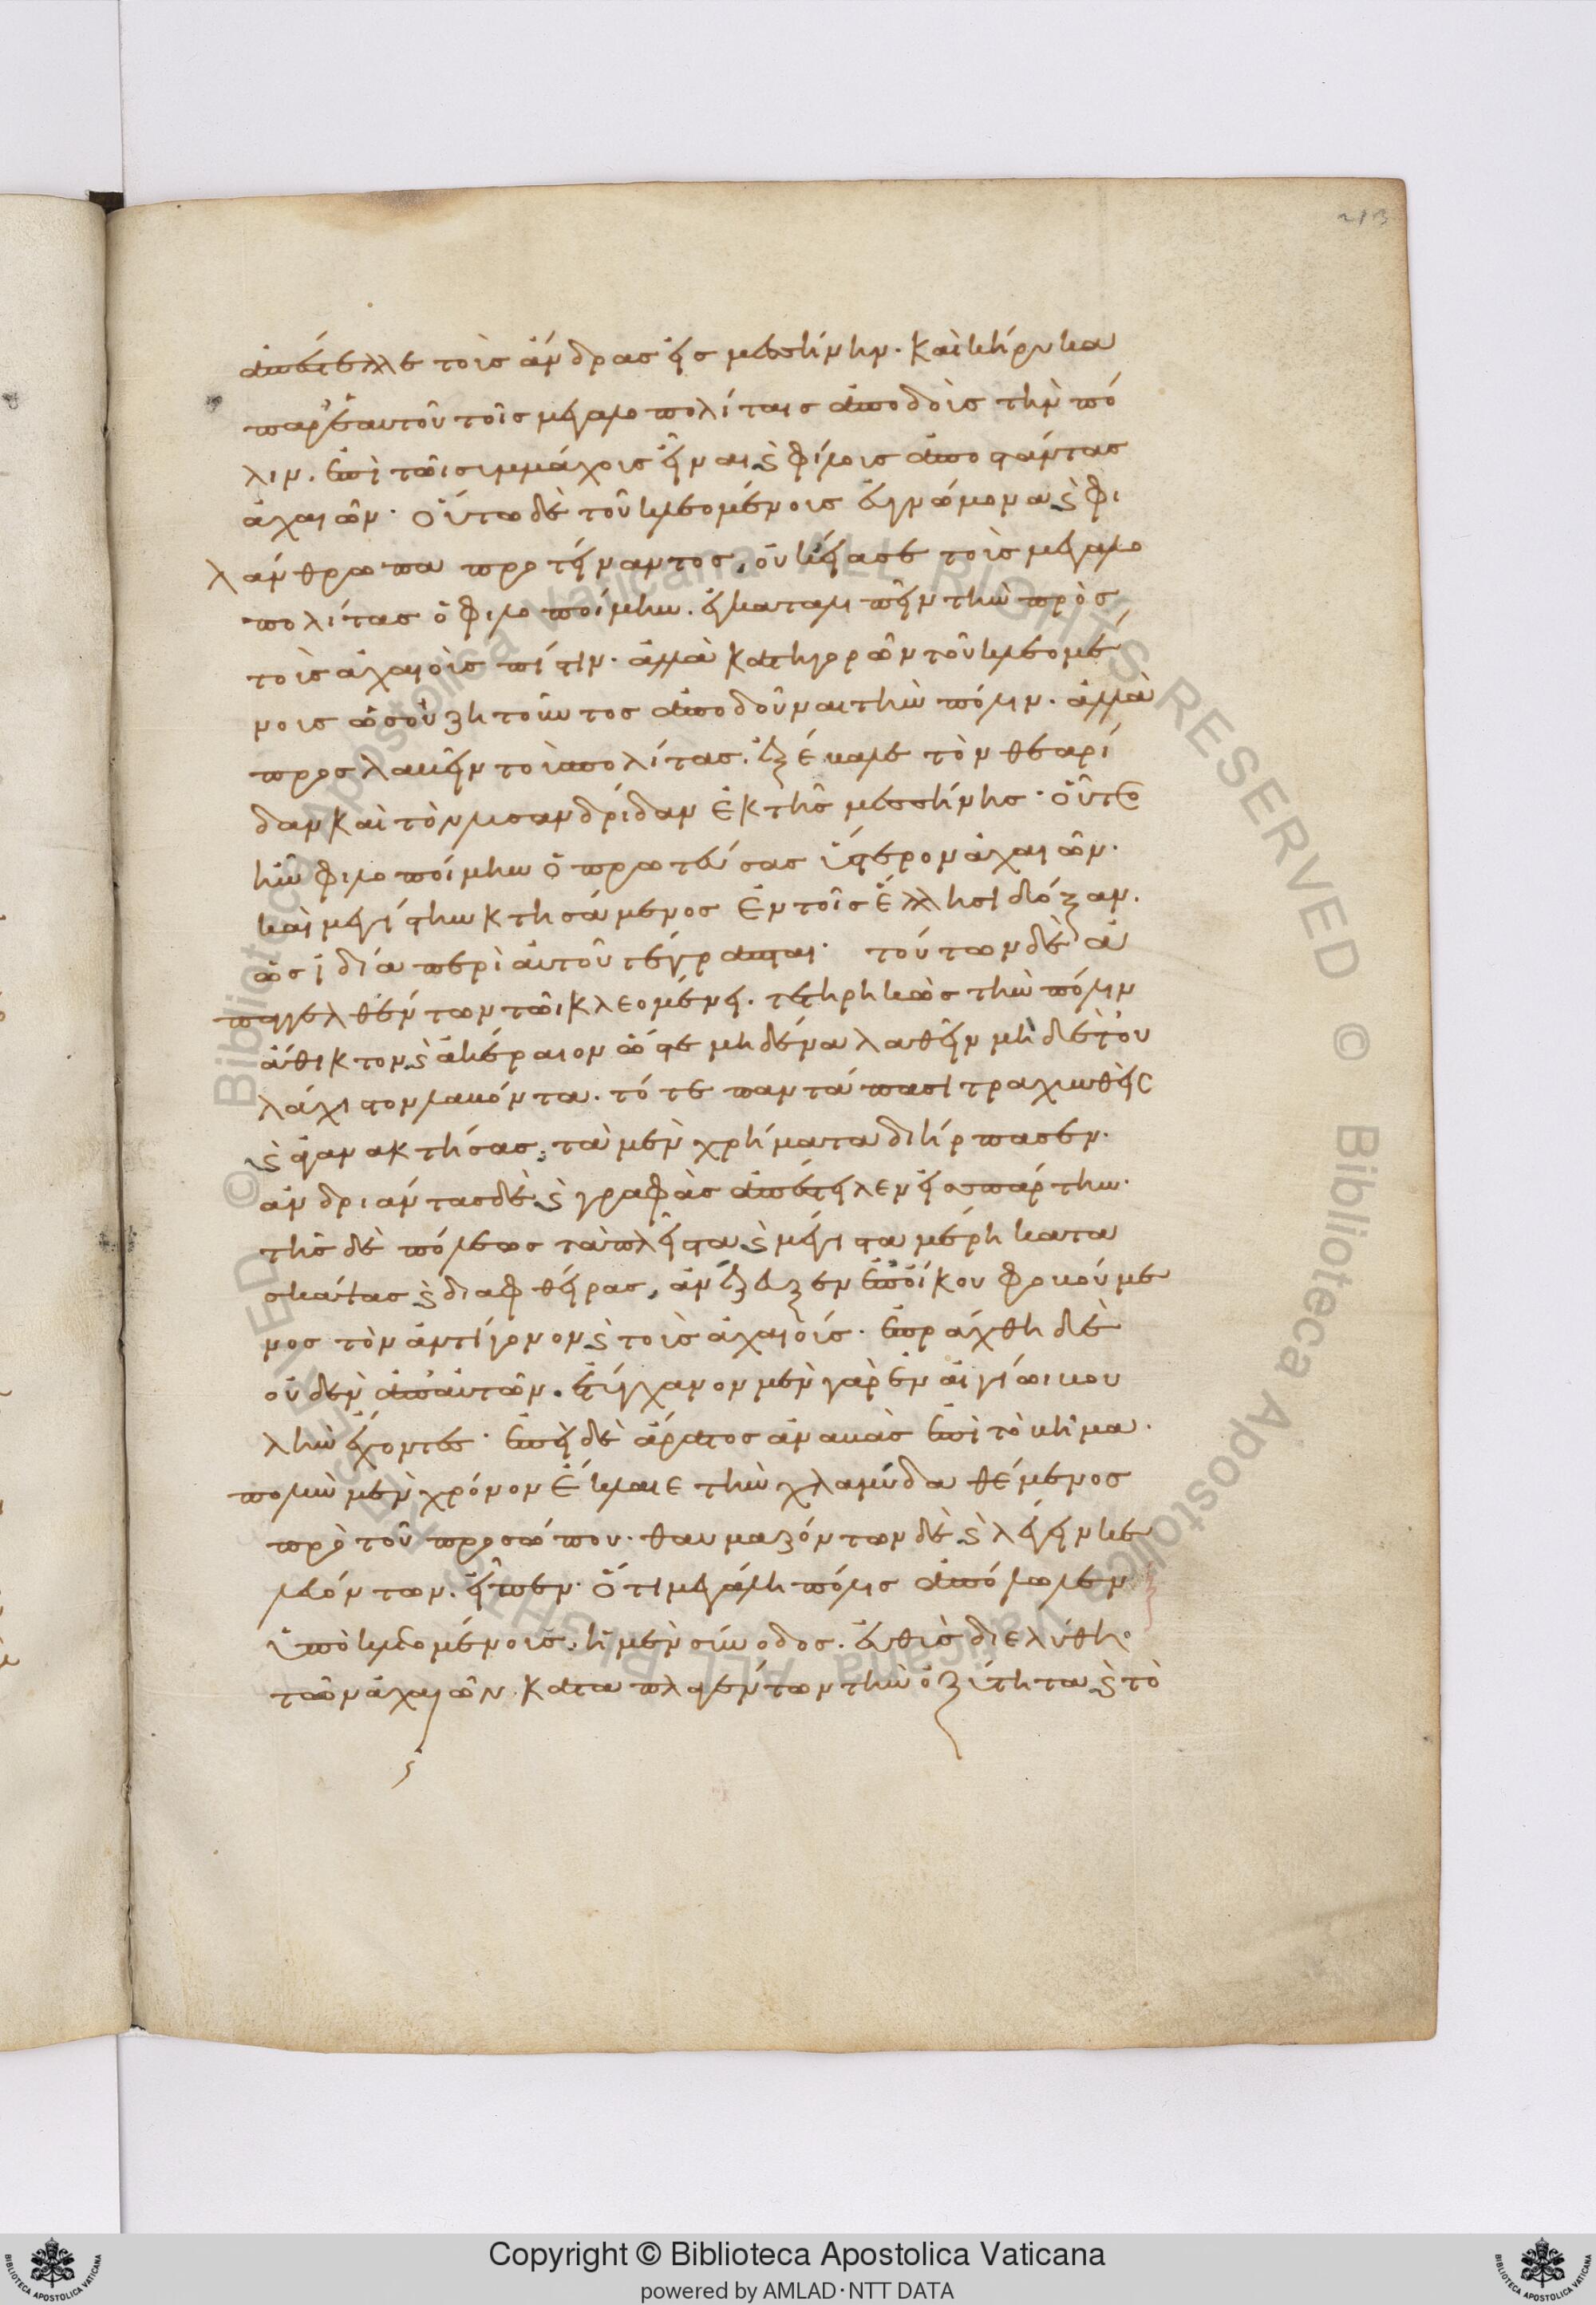 213
ἀπέστελλε τοὺς ἄνδρας εἰς μεσσήνην. καὶ κήρυκα
παρ' ἑαυτοῦ τοῖς μεγαλοπολίταις ἀποδοὺς τὴν πό
λιν. ἐπὶ τῶι συμμάχους εἶναι ϗ φίλους ἀποστάντας
ἀχαιῶν· οὕτω δὲ τοῦ κλεομένους εὐγνώμονα ϗ φι
λάνθρωπα προτείναντος, οὐκ εἴασε τοὺς μεγαλο
πολίτας ὁ φιλοποίμην. ἐγκαταλιπεῖν τὴν πρὸς
τοὺς ἀχαιοὺς πίστιν. ἀλλὰ κατηγορῶν τοῦ κλεομέ
νους ὡς οὐ ζητοῦντος ἀποδοῦναι τὴν πόλιν. ἀλλὰ
προσλαβεῖν τοὺς πολίτας. ἐξέβαλε τὸν θεαρί
δαν καὶ τὸν λυσανδρίδαν ἐκ τῆς μεσσήνης· οὗτος
ἦν φιλοποίμην ὁ πρωτεύσας ὕστερον ἀχαιῶν.
καὶ μεγίστην κτησάμενος ἐν τοῖς ἕλλησι δόξαν.
ὡς ἰδία περὶ αὐτοῦ γέγραπται· τούτων δὲ ἀ
παγγελθέντων τῶι κλεομένει. τετηρηκὼς τὴν πόλιν
ἄθικτον ϗ ἀκέραιον ὥστε μηδένα λαθεῖν μὴ δὲ τοὐ
λάχιστον λαβόντα. τότε παντάπασι τραχυνθεὶς
ϗ ἀγανακτήσας, τὰ μὲν χρήματα διήρπασεν.
ἀνδριάντας δὲ ϗ γραφὰς ἀπέστειλεν εἰς σπάρτην.
τῆς δὲ πόλεως τὰ πλεῖστα ϗ μέγιστα μέρη κατα
σκάψας ϗ διαφθείρας, ἀνέζευξεν ἐπ' οἴκου φοβούμε
νος τὸν ἀντίγονον ϗ τοὺς ἀχαιούς. ἐπράχθη δὲ
οὐδὲν ἀπ' αὐτῶν. ἐτύγχανον μὲν γὰρ ἐν αἰγίωι βου
λὴν ἔχοντες· ἐπεὶ δὲ ἄρατος ἀναβὰς ἐπὶ τὸ βῆμα.
πολὺν μὲν χρόνον ἔκλαιε τὴν χλαμύδα θέμενος
πρὸ τοῦ προσώπου· θαυμαζόντων δὲ ϗ λέγειν κε
λευόντων. εἶπεν· ὅτι μεγάλη πόλις ἀπόλωλεν
ὑπὸ κλεομένους. ἡ μὲν σύνοδος. εὐθὺς διελύθη
τῶν ἀχαιῶν. καταπλαγέντων τὴν ὀξύτητα ϗ τὸ